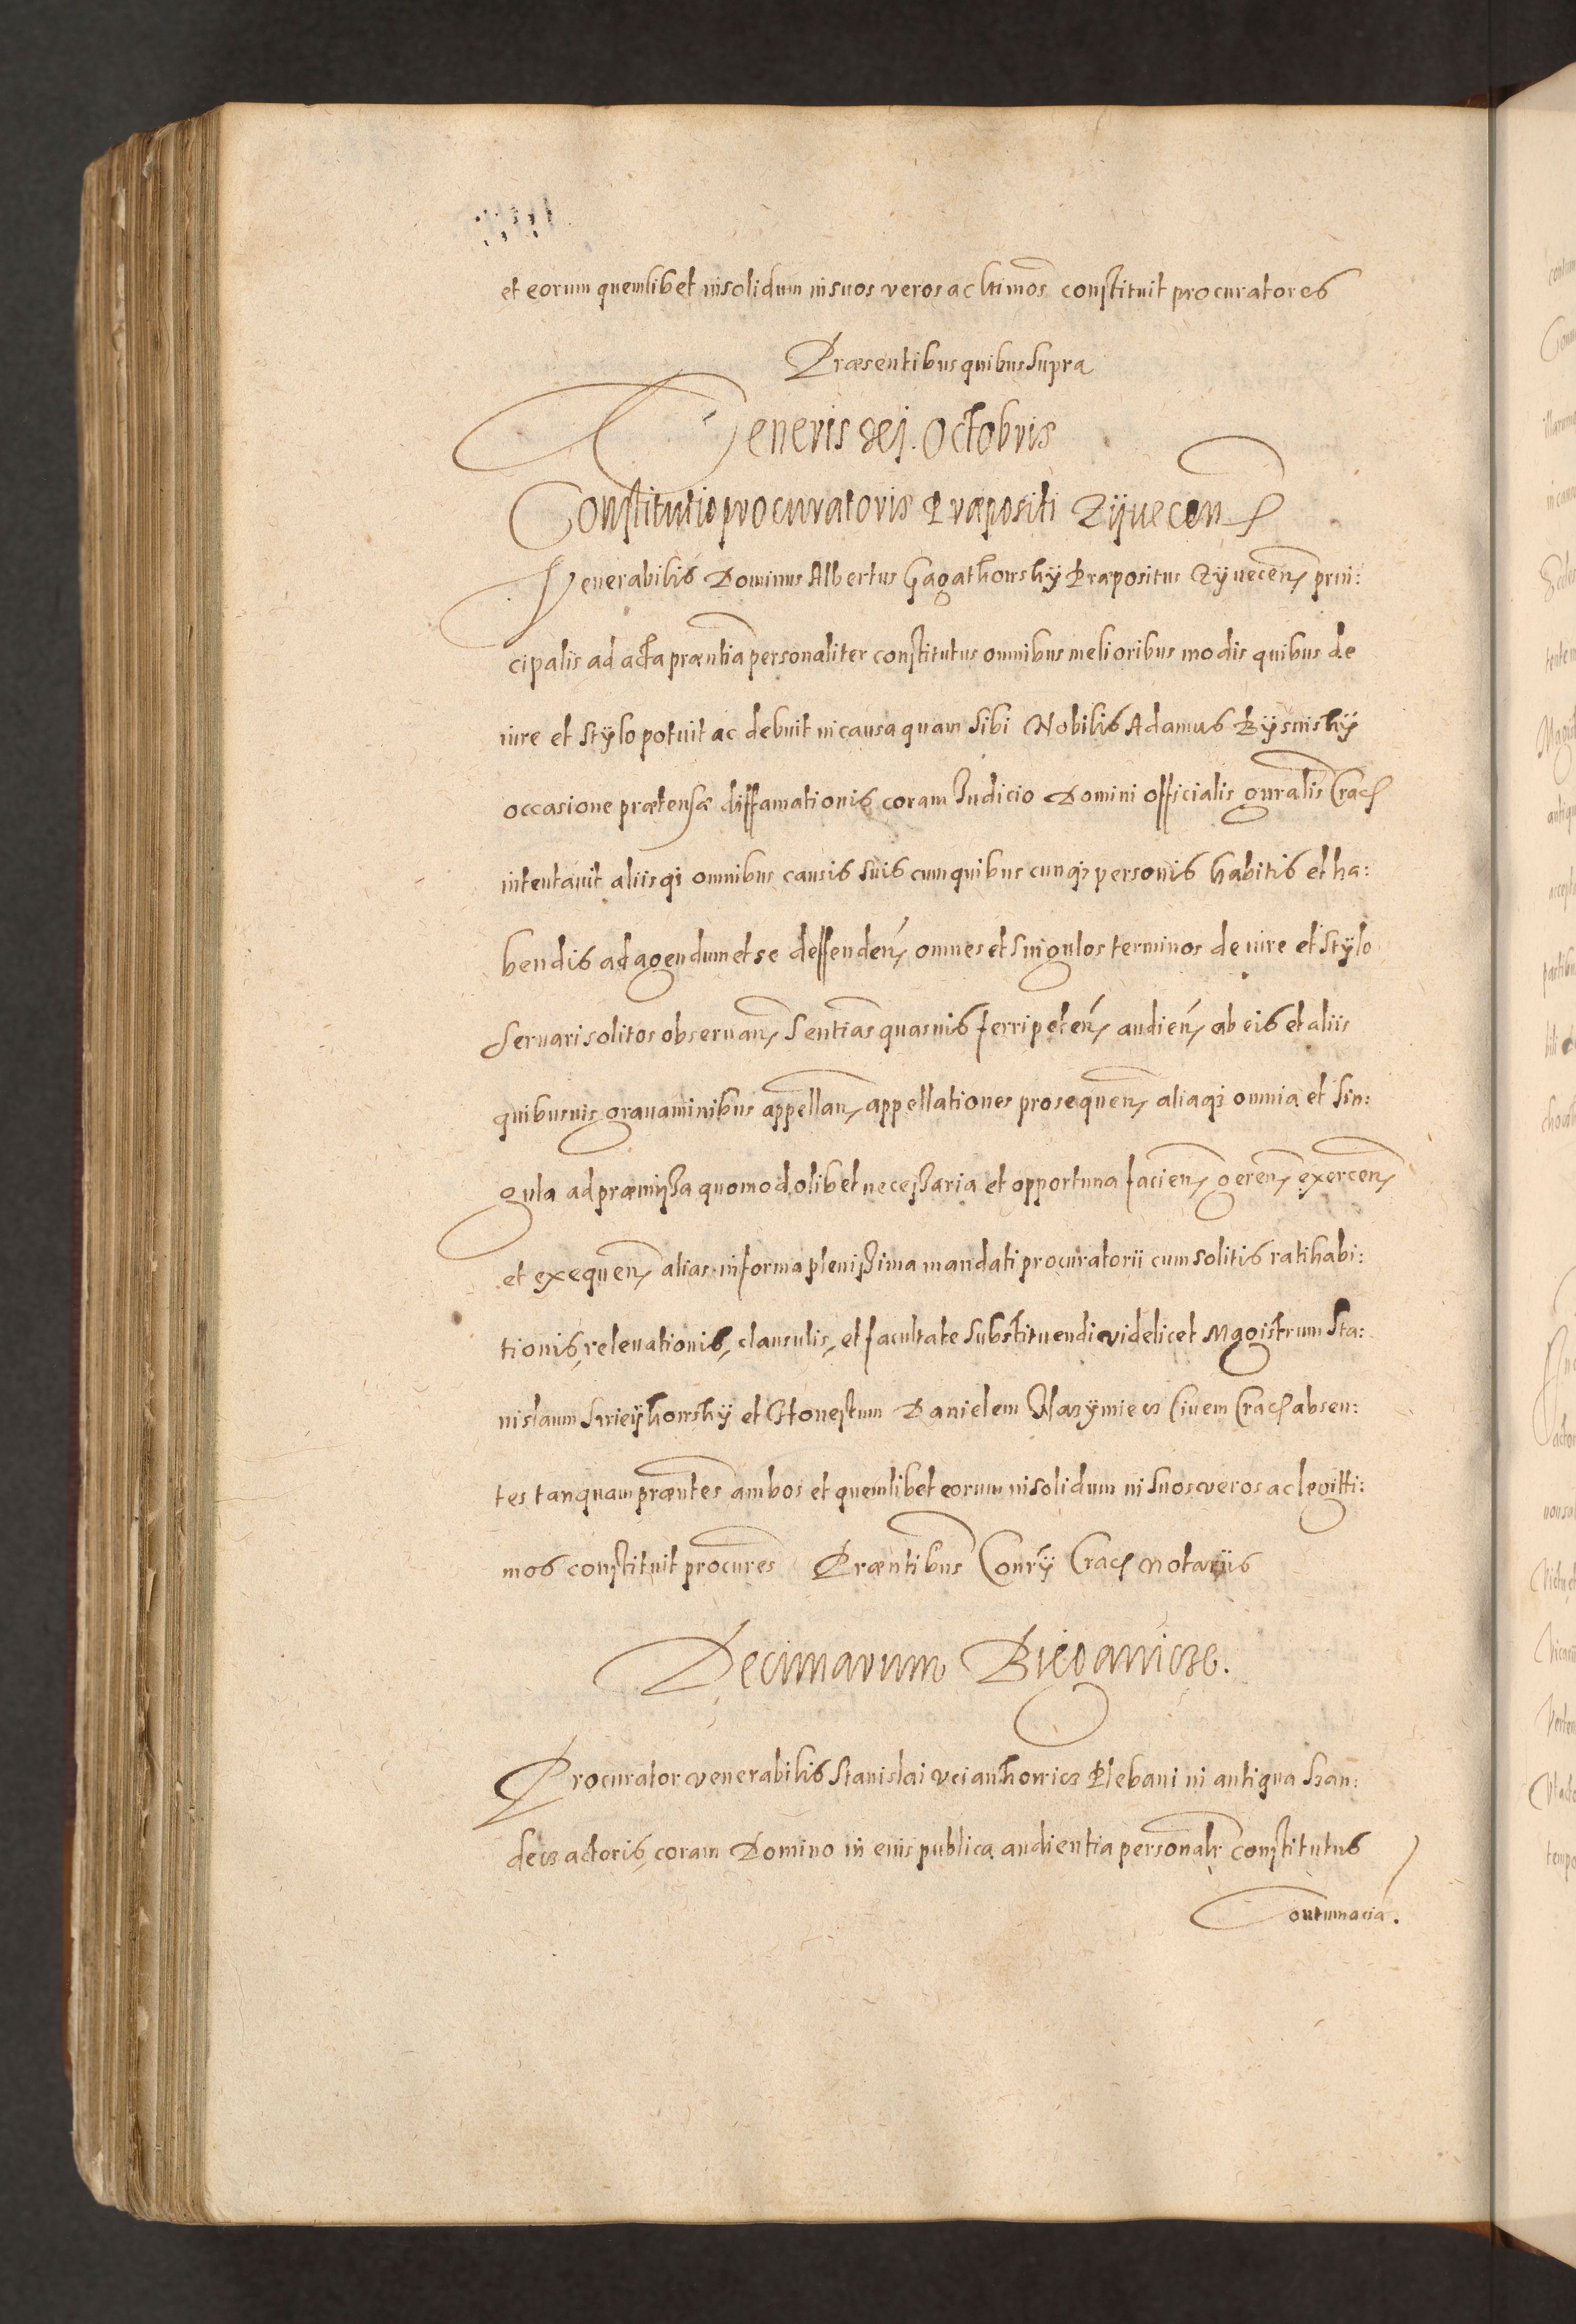 et eorum quemlibet insolidum in suos veros ac ltimos constituit procuratores
Præsentibus quibus supra
Veneris Octobris
Constitutio procuratoris Præpositi Zÿvecen
Venerabilis Dominus Albertus Gagathowskÿ Præpositus Zÿvecen prin:
cipalis ad acta præntia personaliter constitutus omnibus melioribus modis quibus de
iure et stÿlo potuit ac debuit in causa quam sibi Nobilis Adamus Rÿsinskÿ
occasione prætensæ diffamationis coram Iudicio Domini officialis gnralis Crac
intentauit aliisq omnibus causis suis cum quibuscunq personis habitis et ha:
bendis ad agendum et se deffenden omnes et singulos terminos de iure et stÿlo
seruari solitos obseruan sentias quasuis ferri peten audien ab eis et aliis
quibusuis grauaminibus appellan appellationes prosequen aliaq omnia et sin:
gula ad præmissa quomodolibet necessaria et opportuna facien geren exercen
et exequen alias in forma plenissima mandati procuratorii cum solitis ratihabi:
tionis, relevationis, clausulis, et facultate substituendi videlicet Magistrum Sta:
nislaum et Honestum Danielem Ciuem Crac absen:
tes tanquam præntes ambos et quemlibet eorum insolidum in suos veros ac legitti:
mos constituit procures Præntibus Conrÿ Crac Notariis
Decimarum Bieganicze.
Procurator venerabilis Stanislai Plebani in antiqua San:
decz actoris, coram Domino in eius publica audientia personalr constitutus
Contumacia.